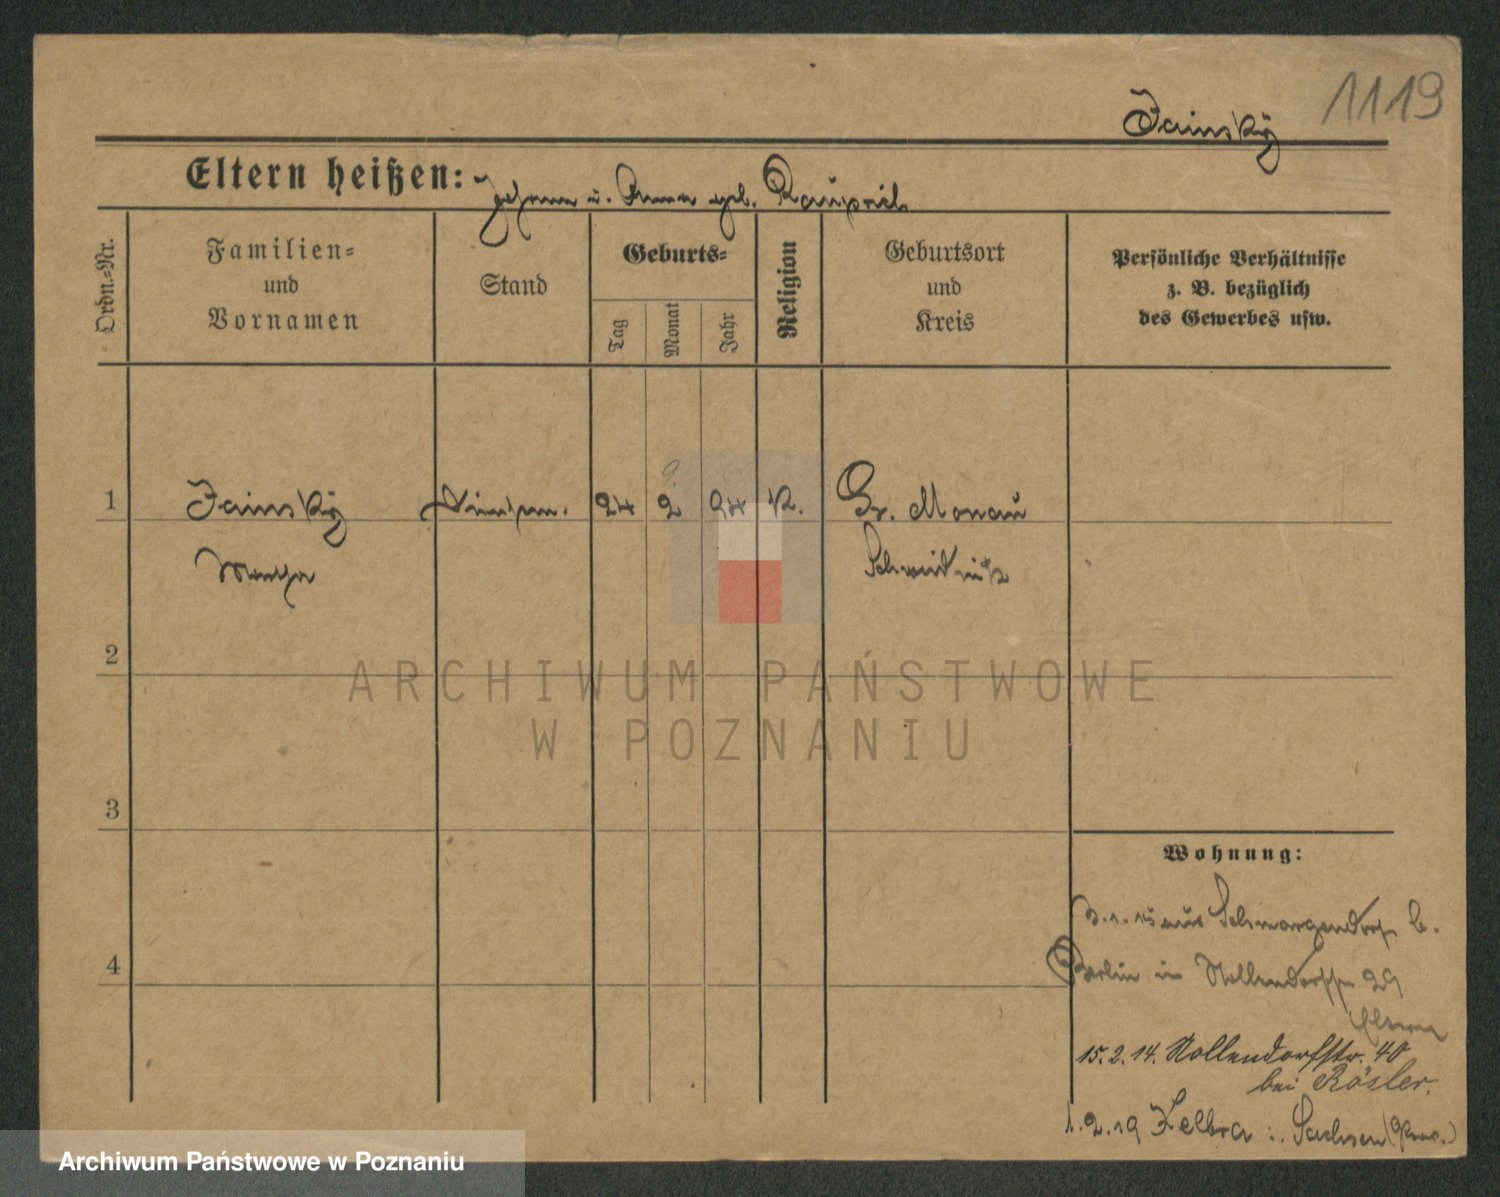 1119
Jainsky
Eltern heißen: Johann u. Anna geb. Rauprich
Ordn.=Nr.
Familien=
und
Vornamen
Stand
Geburts=
Tag
Monat
Jahr
Religion
Geburtsort
und
Kreis
Persönliche Verhältnisse
z. B. bezüglich
des Gewerbes usw.
1
Jainsky 24 2 94 K. Gr. Monau
Schweidnitz
2
ARCHIWUM PAŃSTWOWE
W POZNANIU
3
Wohnung:
aus Schmargendorf b.
4
Berlin in Nollendorfstr 29
Eltern
15.2.14. Nollendorfstr. 40
bei Rösler.
1.2.19 Kelbra i. Sachsen (Prov.)
Archiwum Państwowe w Poznaniu